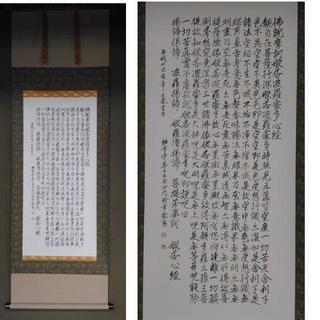 佛説摩訶般若波羅蜜多心経
觀自在菩薩行深般若波羅蜜多時照見五蘊皆空度一切苦厄舍利子
色不異空空不異色色即是空空即是色受想行識亦復如是舍利子是
諸法空相不生不滅不垢不浄不増不減是故空中無色無受想行識無
眼耳鼻舌身意無色聲香味觸法無眼界乃至無意識界無無明亦無無
明盡乃至無老死亦無老死盡無苦集滅道無智亦無得以無所得故菩
提薩埵依般若波羅蜜多故心無罣礙無罣礙故無有恐怖遠離一切顛
倒夢想究竟涅槃三世諸佛依般若波羅蜜多故得阿耨多羅三藐三菩
提故知般若波羅蜜多是大神呪是大明呪是無上呪是無等等呪能除一
切苦真實不虚故説般若波羅蜜多呪即説呪曰
揭諦揭諦 波羅揭諦 波羅僧揭諦 菩提薩婆訶 般若心経